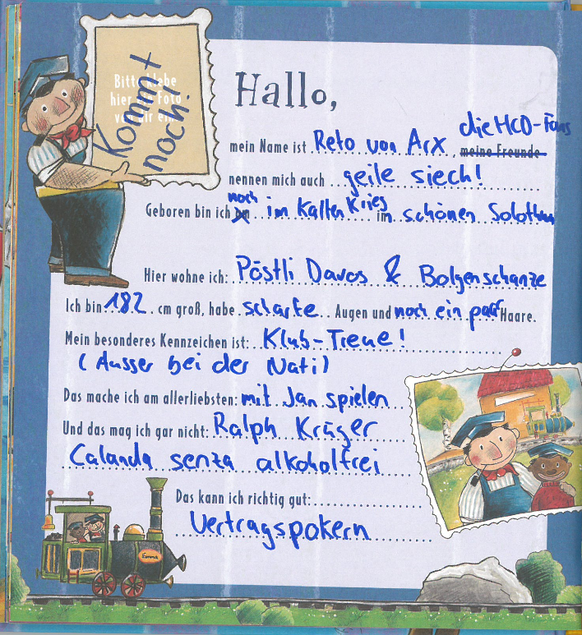 Bitte klebe
hier ein Foto
von dir ein
Kommt
noch!
Hallo,
die HCD-Fans
mein Name ist Reto von Arx, meine Freunde
nennen mich auch geile siech!
noch
Geboren bin ich am im kalten Krieg im schönen Solothurn
Hier wohne ich: Pöstli Davos & Bolgenschanze
Ich bin 182 cm groß, habe scharfe Augen und noch ein paar Haare.
Mein besonderes Kennzeichen ist: Klub-Treue!
(Ausser bei der Nati)
Das mache ich am allerliebsten: mit Jan spielen
Und das mag ich gar nicht: Ralph Krüger
Calanda senza alkoholfrei
Das kann ich richtig gut:
Vertragspokern
Emma